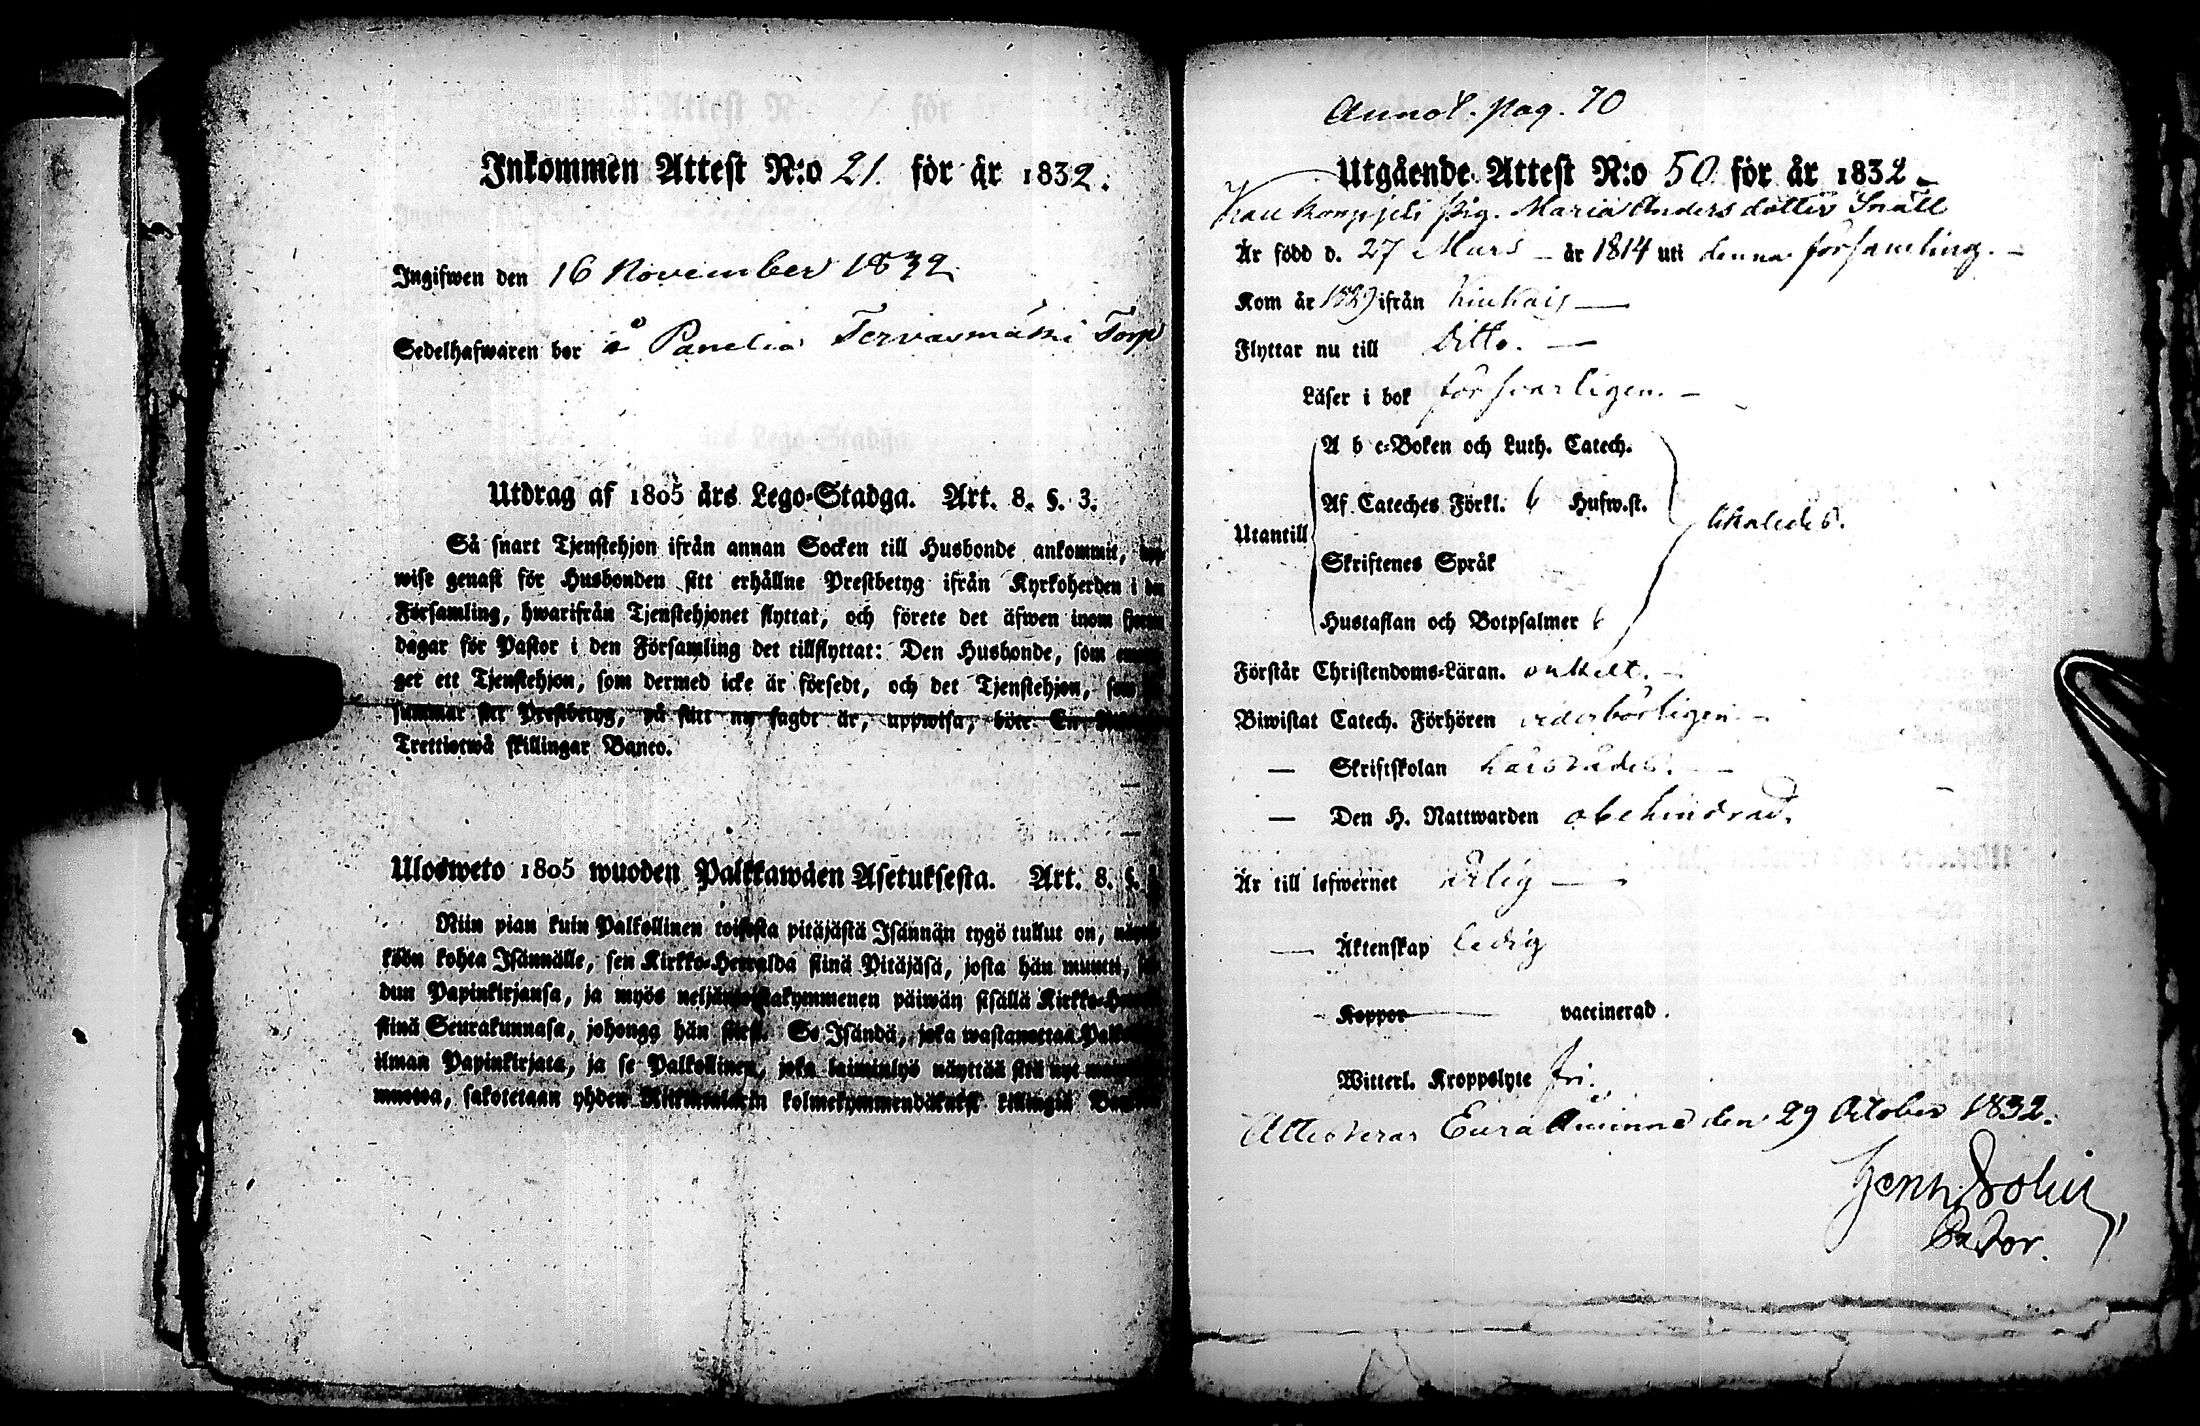 Inkommen Attest N:o 21. för år 1832.
Ingifwen den 16 November 1832.
Sedelhafwaren bor å Panelia Tervasmäki Torp
Utdrag af 1805 års Lego-Stadga. Art. 8. §. 3.
Så snart Tjenstehjon ifrån annan Socken till Husbonde ankommit,
wise genast för Husbonden sitt erhållne Prestbetyg ifrån Kyrkoherden i den
Församling, hwarifrån Tjenstehjonet flyttat, och förete det äfwen inom
dagar för Pastor i den Församling det tillflyttat: Den Husbonde, som
get ett Tjenstehjon, som dermed icke är försedt, och det Tjenstehjon, som
summar sitt Prestbetyg, på sätt nu sagdt är, uppwisa, böte En
Trettiotwå skillingar Banco.
Ulosweto 1805 wuoden Palkkawäen Asetuksesta. Art. 8. §.
Niin pian kuin Palkollinen toisesta pitäjästä Isännän tygö tullut on,
köön kohta Isännälle, sen Kirkko-Herralda siinä Pitäjäsä, josta hän muutti,
dun Papinkirjansa, ja myös neljäntoistakymmenen päiwän sisällä
siinä Seurakunnasa, johonga hän siirsi. Se Isändä, joka wastanottaa
ilman Papinkirjata, ja se Palkollinen, joka laiminlyö näyttää sitä nyt
muotoa, sakotetaan yhden Riksdalerin kolmekymmendäkaksi killingiä
Annot. pag. 70
Utgående Attest N:o 50 för år 1832
Pig. Maria Andersdotter Snäll
Är född d. 27 Mars år 1814 uti denna församling.
Kom år 1829 ifrån Kiukais
Flyttar nu till Ditto.
Läser i bok försvarligen.
A b c-Boken och Luth. Catech.
Af Cateches Förkl. 6 Hufw.st.
Utantill likaledes.
Skriftenes Språk
Hustaflan och Botpsalmer 6
Förstår Christendoms-Läran. enkelt.
Biwistat Catech. Förhören vederbörligen.
— Skriftskolan
— Den H. Nattwarden obehindrad.
Är till lefwernet ärlig
— Äktenskap ledig
Koppor vaccinerad.
Witterl. Kroppslyte fri.
Attesteras Eura Åminne den 29 October 1832.
Pastor.